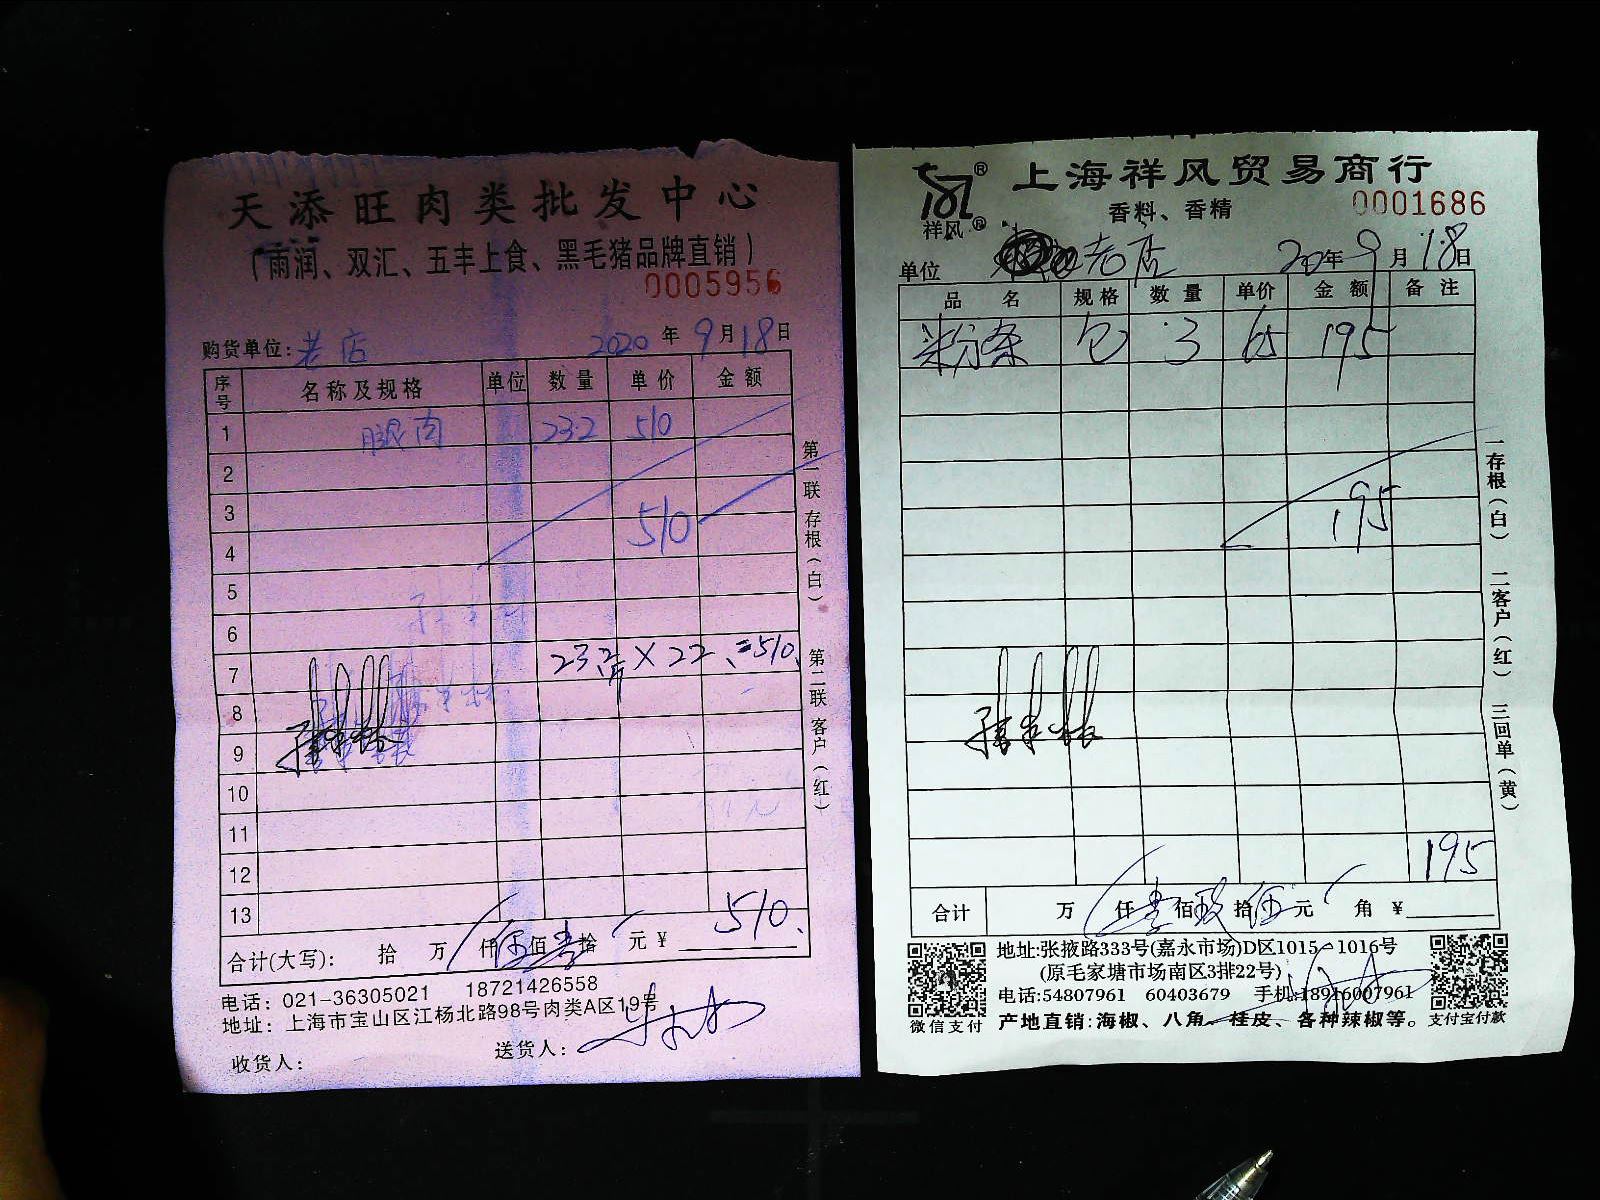 天添旺肉类批发中心
(雨润、双汇、五丰上食、黑毛猪品牌直销)
0005956
购货单位: 老店 2020 年 9 月 18 日
序号 名称及规格 单位 数量 单价 金额
1 腿肉 23.2 510
2
3
510
4
5
6
7 23.2斤 X 22 =510
8
9
10
11
12
13
510
合计(大写): 拾 万 仟 伍 佰 壹 拾 元 ¥
电话: 021-36305021 18721426558
地址: 上海市宝山区江杨北路98号肉类A区19号
收货人: 送货人:
第一联 存根(白) 第二联 客户(红)
祥风
上海祥风贸易商行
香料、香精
0001686
单位 老店 20 年 9 月 18 日
品名 规格 数量 单价 金额 备注
米粉条 包 3 65 195
195
195
合计 万 仟 壹 佰 玖 拾 伍 元 角 ¥
地址:张掖路333号(嘉永市场)D区1015-1016号
(原毛家塘市场南区3排22号)
电话:54807961 60403679 手机:18916007961
产地直销:海椒、八角、桂皮、各种辣椒等。
微信支付
支付宝付款
一存根(白) 二客户(红) 三回单(黄)